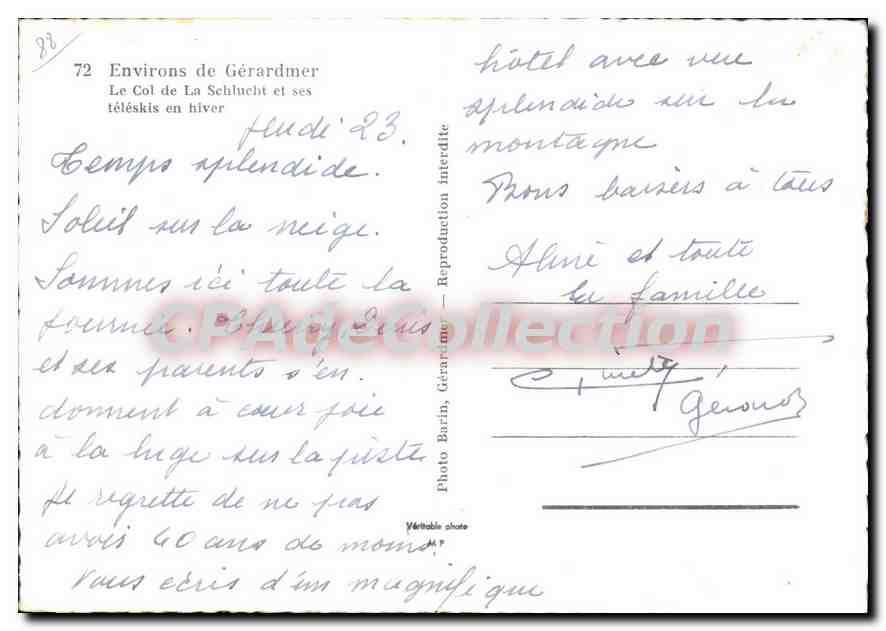 88
72 Environs de Gérardmer
Le Col de La Schlucht et ses
téléskis en hiver
Jeudi 23.
Temps splendide.
Soleil sur la neige.
Sommes ici toute la
journée. Thierry Denis
et ses parents s'en
donnent à cœur joie
à la luge sur la piste
Je regrette de ne pas
avoir 40 ans de moins.
Vous écris d'un magnifique
hôtel avec vue
splendide sur la
montagne
Bons baisers à tous
Aline et toute
la famille
Gérard
Photo Barin, Gérardmer — Reproduction interdite
Véritable photo
M P
CPAdeCollection